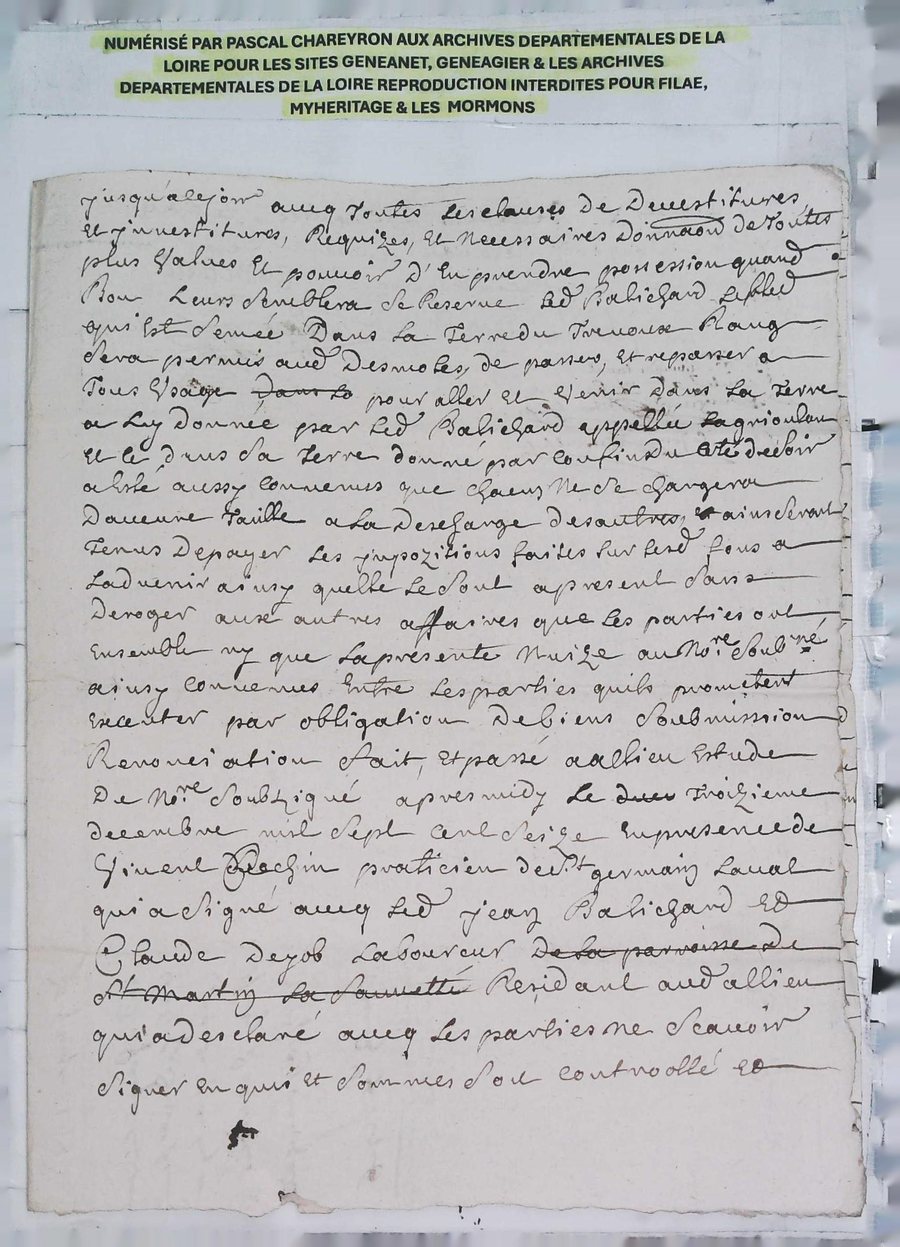 NUMÉRISÉ PAR PASCAL CHAREYRON AUX ARCHIVES DEPARTEMENTALES DE LA
LOIRE POUR LES SITES GENEANET, GENEAGIER & LES ARCHIVES
DEPARTEMENTALES DE LA LOIRE REPRODUCTION INTERDITES POUR FILAE,
MYHERITAGE & LES MORMONS
jusqu'a cejour aucq Toutes les clauses De Deuestitures
Et jnuestitures, Requizes, Et Necessaires de Toutes
plus Values Et pouuoir D'En prendre possession quand
Bon Leurs Semblera Se Reserue led Balichard le bled
qui Est Semée Dans La Terre du
Sera permis aud Desmoles, de passer, Et repasser a
Tous Vsage Dans La pour aller Et Venir Dans La Terre
a Luy Donnée par Led Balichard appellée
Et le dans Sa Terre donné par Confin Du Coté de soir
a Esté aussy Conuenus que chacung Ne Se chargera
Daucune Taille a La Descharge des autres, Et ains Seront
Tenus De payer Les jnpozitions faites sur lesd fons a
Laduenir ainsy quelle Le Sont apresent Sans
Deroger aux autres affaires que Les parties ont
Ensemble ny que La presente Nuize au Nore Soubné
ainsy Conuenues Entre Les parties quils promettent
Executer par obligation De biens Soubmission
Renonciation Fait, Et passé a allieu Estude
De Nore Soubzigné apres midy Le Troizieme
decembre mil Sept Cent Seize En presence de
Vincent praticien de St germain Laual
qui a Signé aucq Led jean Balichard Et
Claude Dejob Laboureur De La parroisse De
St Martin La Sauuetté Residant aud allieu
qui a desclaré aucq Les parties ne Scauoir
Signer Enquis Et Sommes Soit Controollé Et